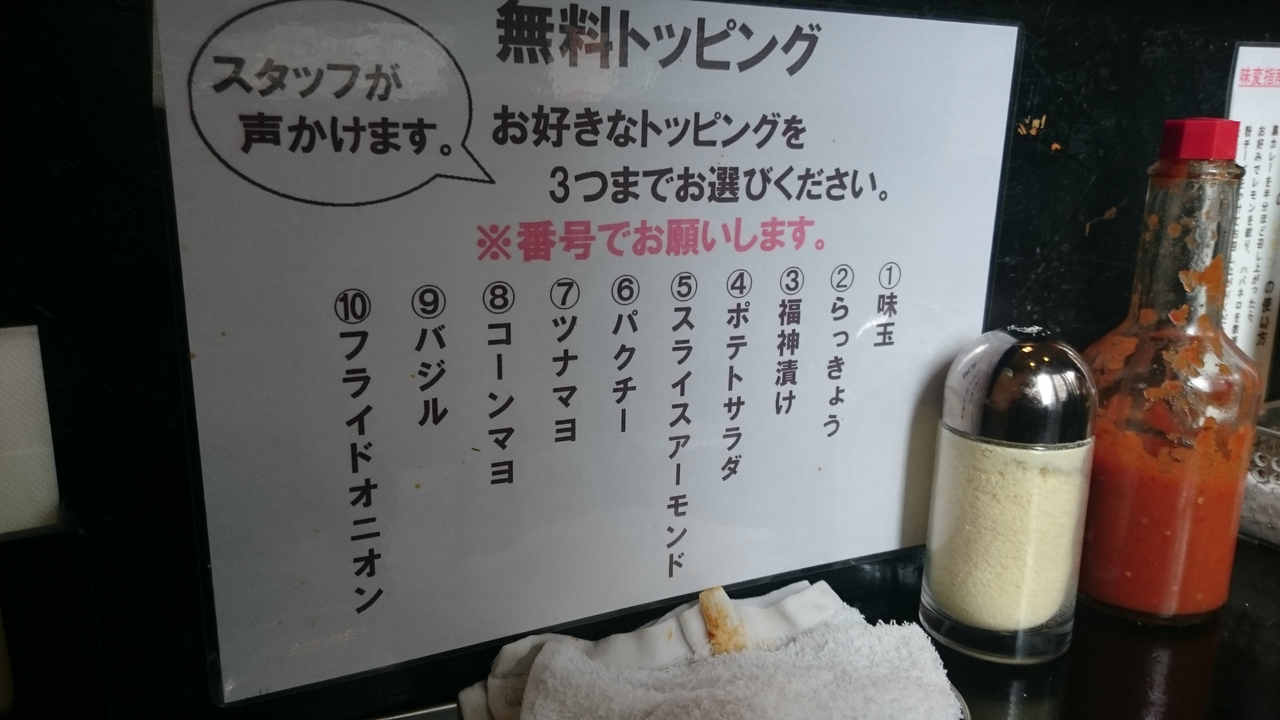 無料トッピング
スタッフが
声かけます。
お好きなトッピングを
3つまでお選びください。
※番号でお願いします。
①味玉
②らっきょう
③福神漬け
④ポテトサラダ
⑤スライスアーモンド
⑥パクチー
⑦ツナマヨ
⑧コーンマヨ
⑨バジル
⑩フライドオニオン
味変指南